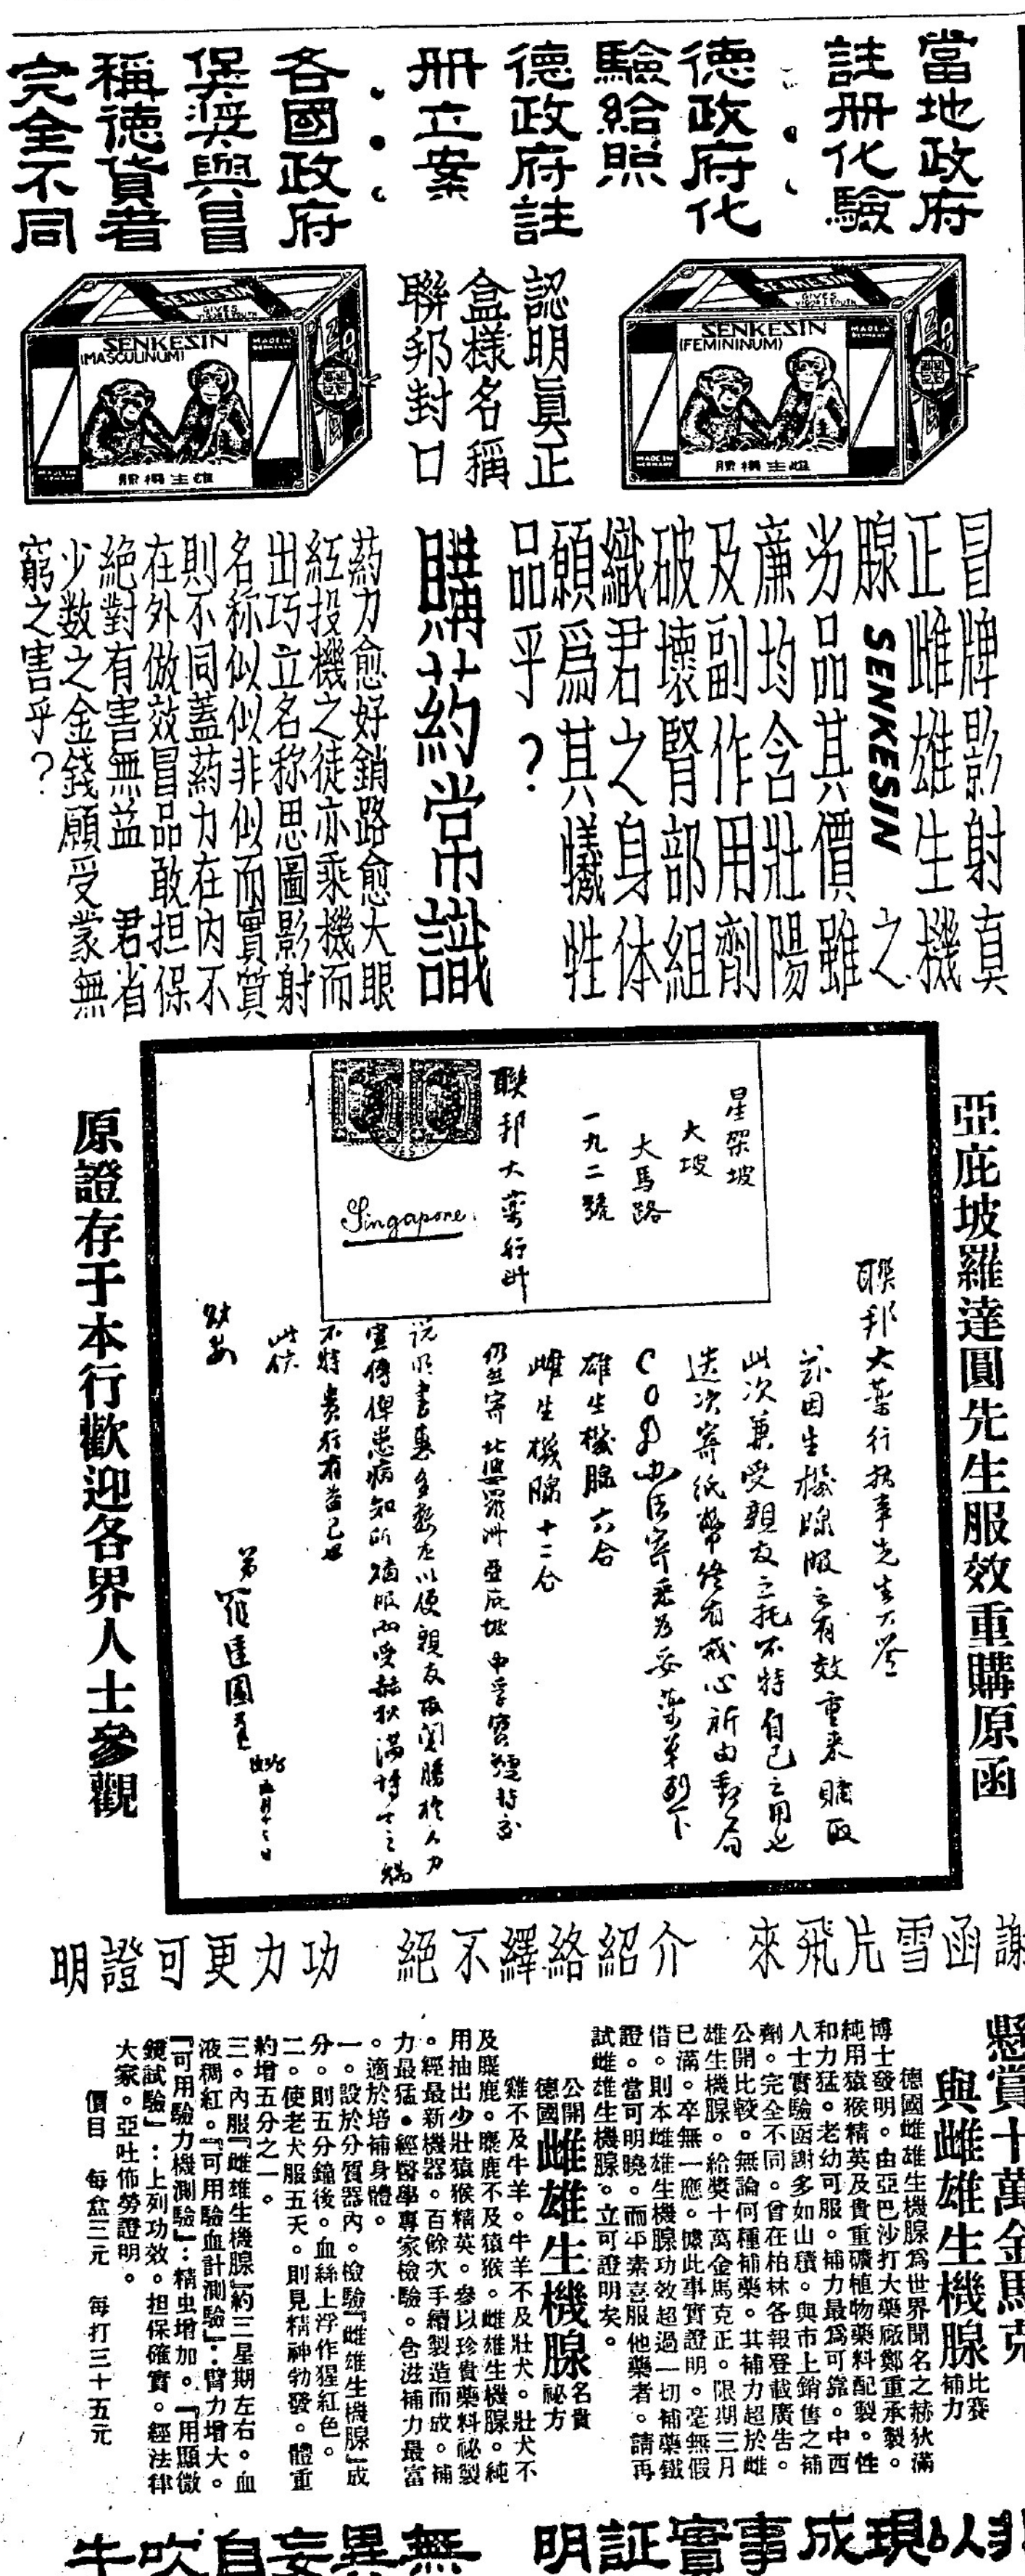 當地政府
註册化驗
德政府化
驗給照
德政府註
册立案
各國政府
保奬與冒
稱德貨者
完全不同
SENKESIN
(FEMININUM)
MADE IN GERMANY
腺機生雌
認明眞正
盒樣名稱
聯邦封口
GIVES
SENKESIN
(MASCULINUM)
MADE IN GERMANY
腺機生雄
冒牌影射真
正雌雄生機
腺SENKESIN之
劣品其價雖
廉均含壯陽
及副作用劑
破壞腎部組
織君之身体
願爲其犧牲
品乎？
購葯常識
葯力愈好銷路愈大眼
紅投機之徒亦乘機而
出巧立名称思圖影射
名称似似非似而實質
則不同蓋葯力在内不
在外倣效冒品敢担保
絕對有害無益　君省
少数之金錢願受蒙無
窮之害乎？
亞庇坡羅達圓先生服效重購原函
星架坡
大坡
大馬路
一九二號
聯邦大藥行
Singapore
聯邦大藥行执事先生大鉴
茲因生機腺服之有效重来購取
此次兼受親友之托不特自己之用也
迭次寄紙幣終有戒心祈由郵局
C O D 办法寄来为妥藥单列下
雄生機腺六合
雌生機腺十二合
仍並寄北婆羅洲亞庇坡
说明書惠多数在以便親友取閱勝於人力
宣傳俾患病知所適服而受赫狄满博士之賜
不特貴行有益已也
此候
财安
弟羅達圓
五月十三日
原證存于本行歡迎各界人士參觀
謝函雪片飛來　介紹絡繹不絕　功力更可證明
懸賞十萬金馬克
與雌雄生機腺比賽補力
德國雌雄生機腺爲世界聞名之赫狄滿
博士發明。由亞巴沙打大藥廠鄭重承製。
純用猿猴精英及貴重礦植物藥料配製。性
和力猛。老幼可服。補力最爲可靠。中西
人士實驗函謝多如山積。與市上銷售之補
劑。完全不同。曾在柏林各報登載廣告。
公開比較。無論何種補藥。其補力超於雌
雄生機腺。給奬十萬金馬克正。限期三月
已滿。卒無一應。據此事實證明。毫無假
借。則本雌雄生機腺功效超過一切補藥鐵
證。當可明曉。而平素喜服他藥者。請再
試雌雄生機腺。立可證明矣。
公開德國雌雄生機腺名貴秘方
雞不及牛羊。牛羊不及壯犬。壯犬不
及麋鹿。麋鹿不及猿猴。雌雄生機腺。純
用抽出少壯猿猴精英。參以珍貴藥料秘製
。經最新機器。百餘次手續製造而成。補
力最猛。經醫學專家檢驗。含滋補力最富
。適於培補身體。
一。設於分質器內。檢驗『雌雄生機腺』成
分。則五分鐘後。血絲上浮作猩紅色。
二。使老犬服五天。則見精神勃發。體重
約增五分之一。
三。內服『雌雄生機腺』約三星期左右。血
液稠紅。『可用驗血計測驗』：臂力增大。
『可用驗力機測驗』：精虫增加。『用顯微
鏡試驗』：上列功效。担保確實。經法律
大家。亞吐佈勞證明。
價目　每盒三元　每打三十五元
非以現成事實証明　無異妄自吹牛